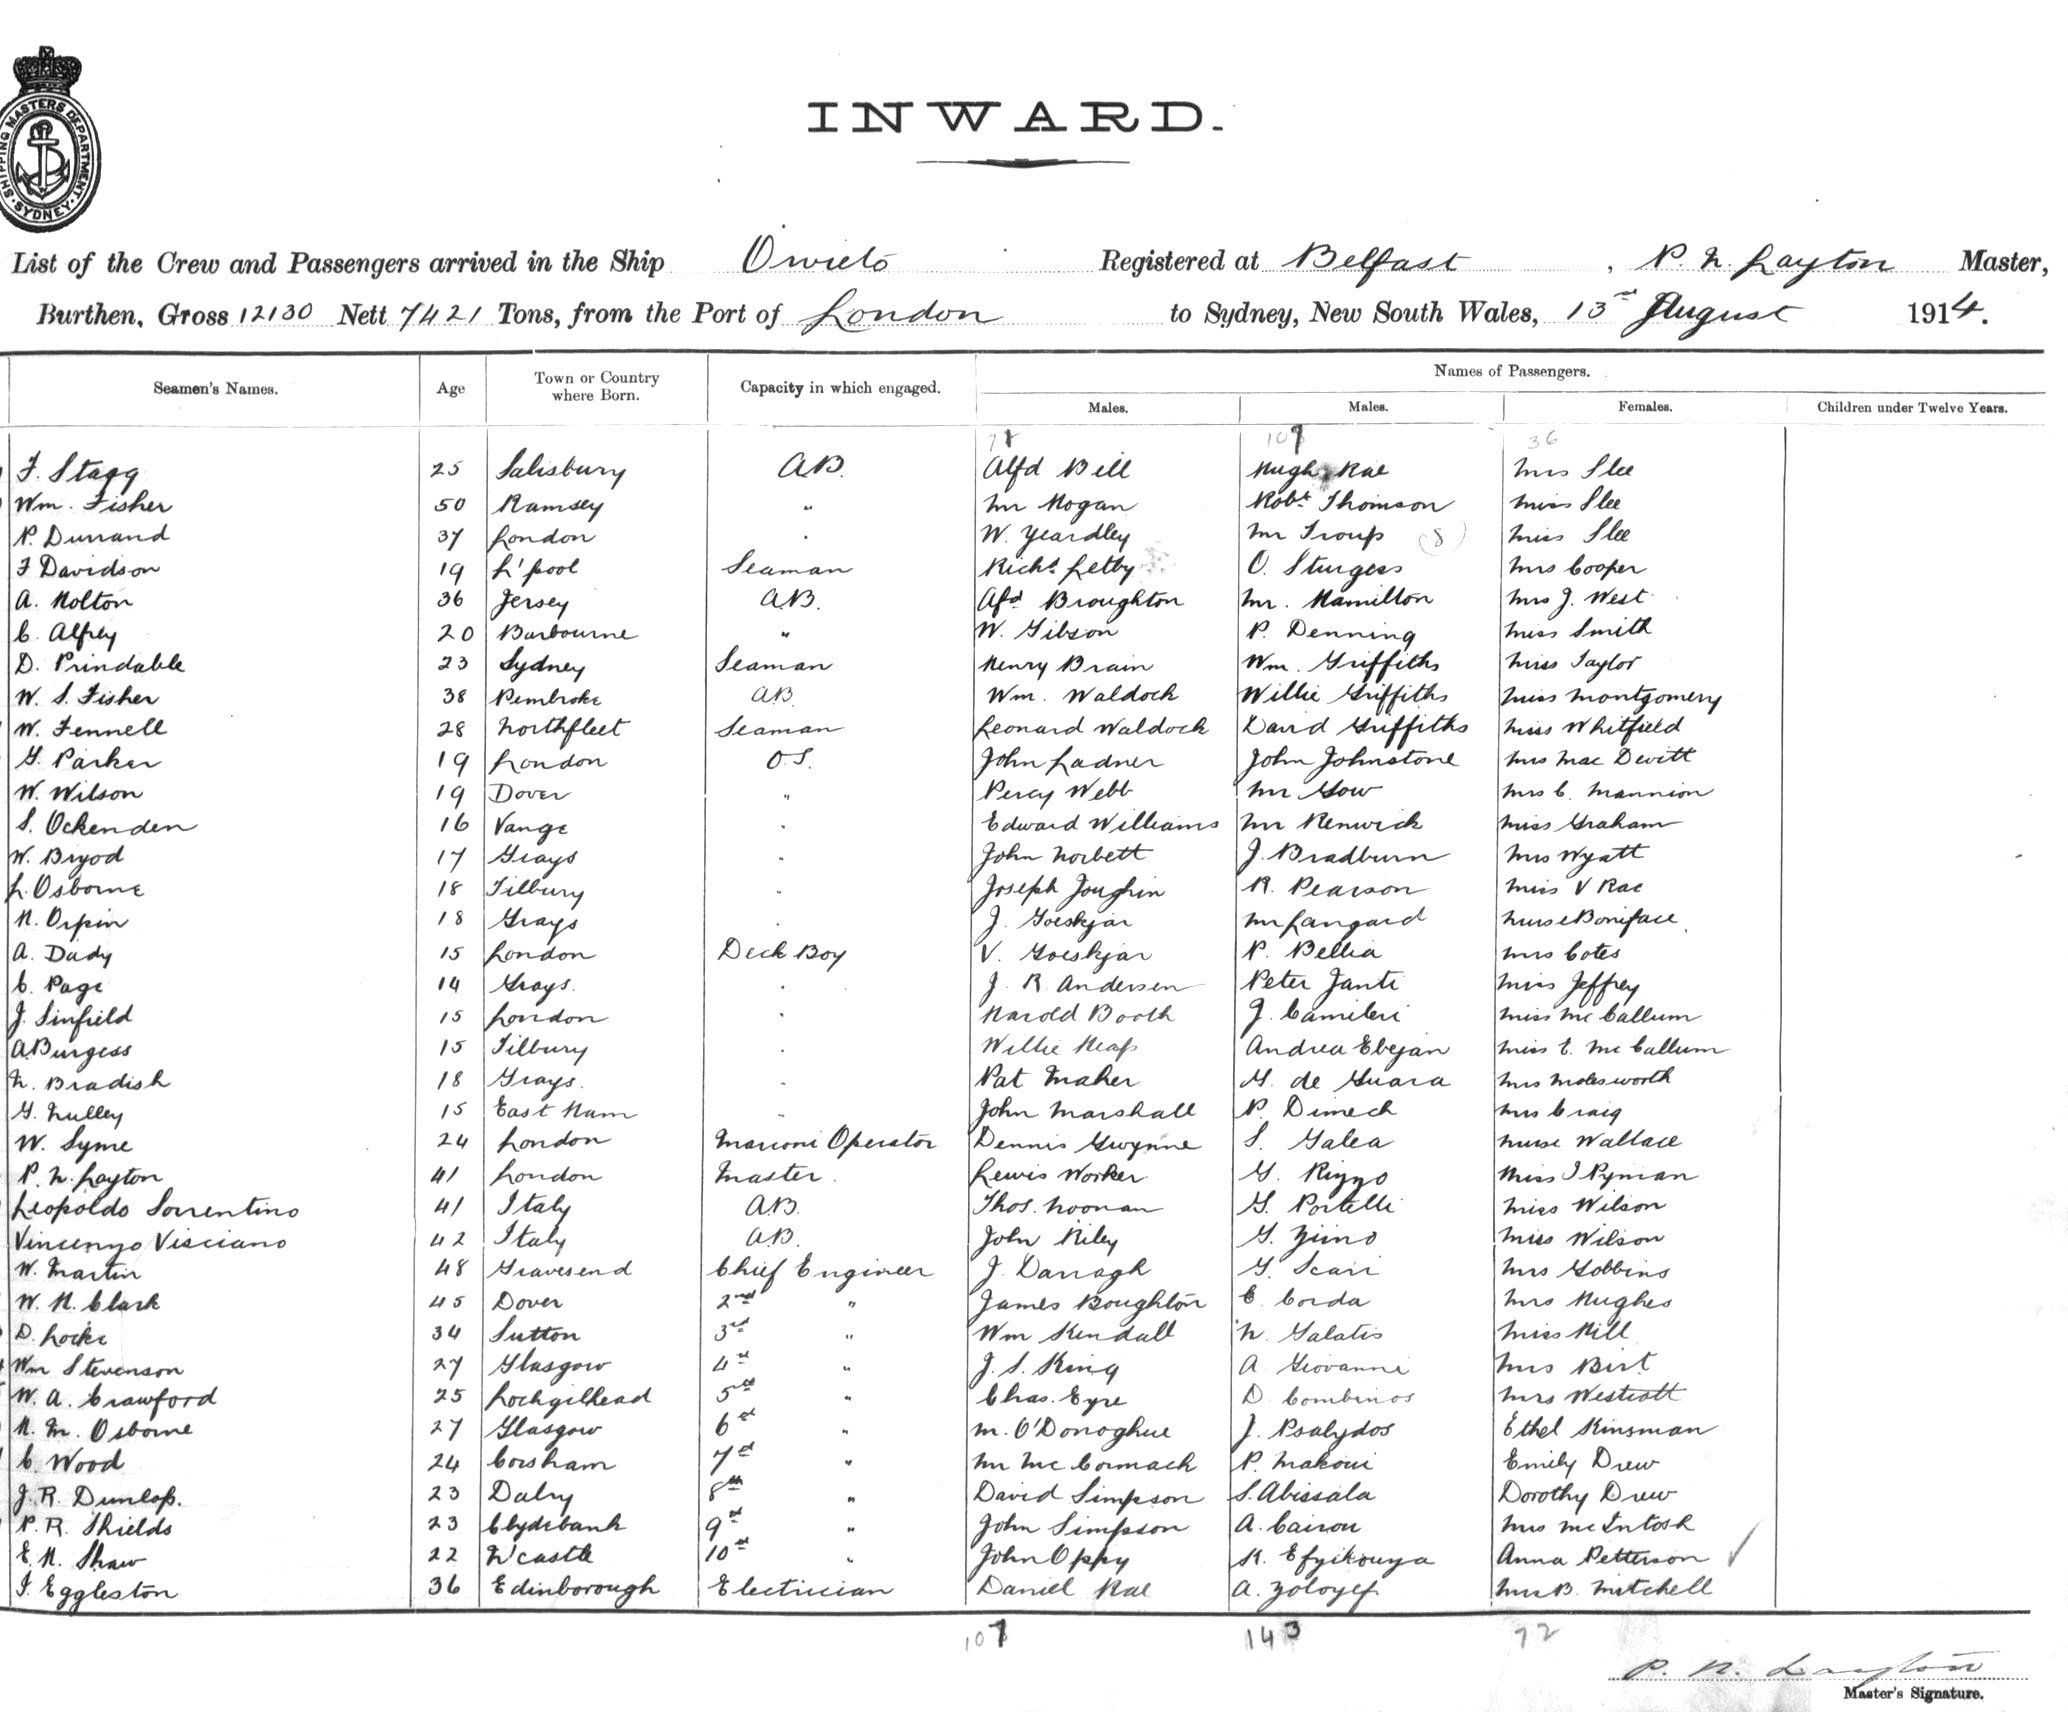 SHIPPING MASTERS DEPARTMENT SYDNEY
INWARD.
List of the Crew and Passengers arrived in the Ship Orvieto Registered at Belfast , P. N. Layton Master,
Burthen, Gross 12130 Nett 7421 Tons, from the Port of London to Sydney, New South Wales, 13 August 1914.
Seamen's Names. Age Town or Country where Born. Capacity in which engaged. Names of Passengers.
Males. Males. Females. Children under Twelve Years.
71 107 36
F. Stagg 25 Salisbury A.B. Alfd Bill Hugh Rae Mrs Slee
Wm. Fisher 50 Ramsey " Mr Hogan Robt Thomson Miss Slee
P. Durrand 37 London " W. Yeardley Mr Troup (8) Miss Slee
F Davidson 19 L'pool Seaman Richd Letby O. Sturgess Mrs Cooper
A. Holton 36 Jersey A.B. Alfd Broughton Mr. Hamilton Mrs J. West
C. Alfrey 20 Barbourne " W. Gibson P. Denning Miss Smith
D. Prindable 23 Sydney Seaman Henry Brain Wm. Griffiths Miss Taylor
W. S. Fisher 38 Pembroke AB Wm. Waldock Willie Griffiths Miss Montgomery
W. Fennell 28 Northfleet Seaman Leonard Waldock David Griffiths Miss Whitfield
G. Parker 19 London O.S. John Ladner John Johnstone Mrs Mac Devitt
W. Wilson 19 Dover " Percy Webb Mr Gow Mrs C. Mannion
S. Ockenden 16 Vange " Edward Williams Mr Renwick Miss Graham
W. Bryod 17 Grays " John Norbett J. Bradburn Mrs Wyatt
L. Osborne 18 Tilbury " Joseph Joughin R. Pearson Miss V Rae
H. Orpin 18 Grays " J. Goeskjar Mr Langard Nurse Boniface
A. Dady 15 London Deck Boy V. Goeskjar P. Bellia Mrs Cotes
C. Page 14 Grays. " J. R. Andersen Peter Janti Miss Jeffrey
J. Sinfield 15 London " Harold Booth J. Camileri Miss Mc Callum
A Burgess 15 Tilbury " Willie Heap Andrea Ebejan Miss E. Mc Callum
N. Bradish 18 Grays. " Pat Maher G. de Guara Mrs Molesworth
G. Nulley 15 East Ham " John Marshall P. Dimech Mrs Craig
W. Syme 24 London Marconi Operator Dennis Gwynne S. Galea Nurse Wallace
P. N. Layton 41 London Master. Lewis Worker G. Rizzo Miss I Pyman
Leopoldo Sorrentino 41 Italy A.B. Thos. Noonan G. Portelli Miss Wilson
Vincenzo Visciano 42 Italy A.B. John Riley G. Zimo Miss Wilson
W. Martin 48 Gravesend Chief Engineer J. Darragh G. Scari Mrs Gobbins
W. H. Clark 45 Dover 2nd " James Boughton C. Corda Mrs Hughes
D. Locke 34 Sutton 3rd " Wm Kendall N. Galatis Miss Hill
Wm Stevenson 27 Glasgow 4th " J. S. King A Giovanni Mrs Birt
W. A. Crawford 25 Lochgilhead 5th " Chas. Eyre D Combinos Mrs Westcott
H. M. Osborne 27 Glasgow 6th " M. O'Donoghue J. Psalydos Ethel Kinsman
C. Wood 24 Corsham 7th " Mr Mc Cormack P. Makoui Emily Drew
J. R. Dunlop. 23 Dalry 8th " David Simpson S. Abissala Dorothy Drew
P. R. Shields 23 Clydebank 9th " John Simpson A. Cairou Mrs McIntosh
E. H. Shaw 22 N'castle 10th " John Oppy K. Efyikouya Anna Petterson ✓
I. Eggleston 36 Edinborough Electrician Daniel Rae A. Zoloyef Mrs B. Mitchell
107 143 72
P. N. Layton
Master's Signature.